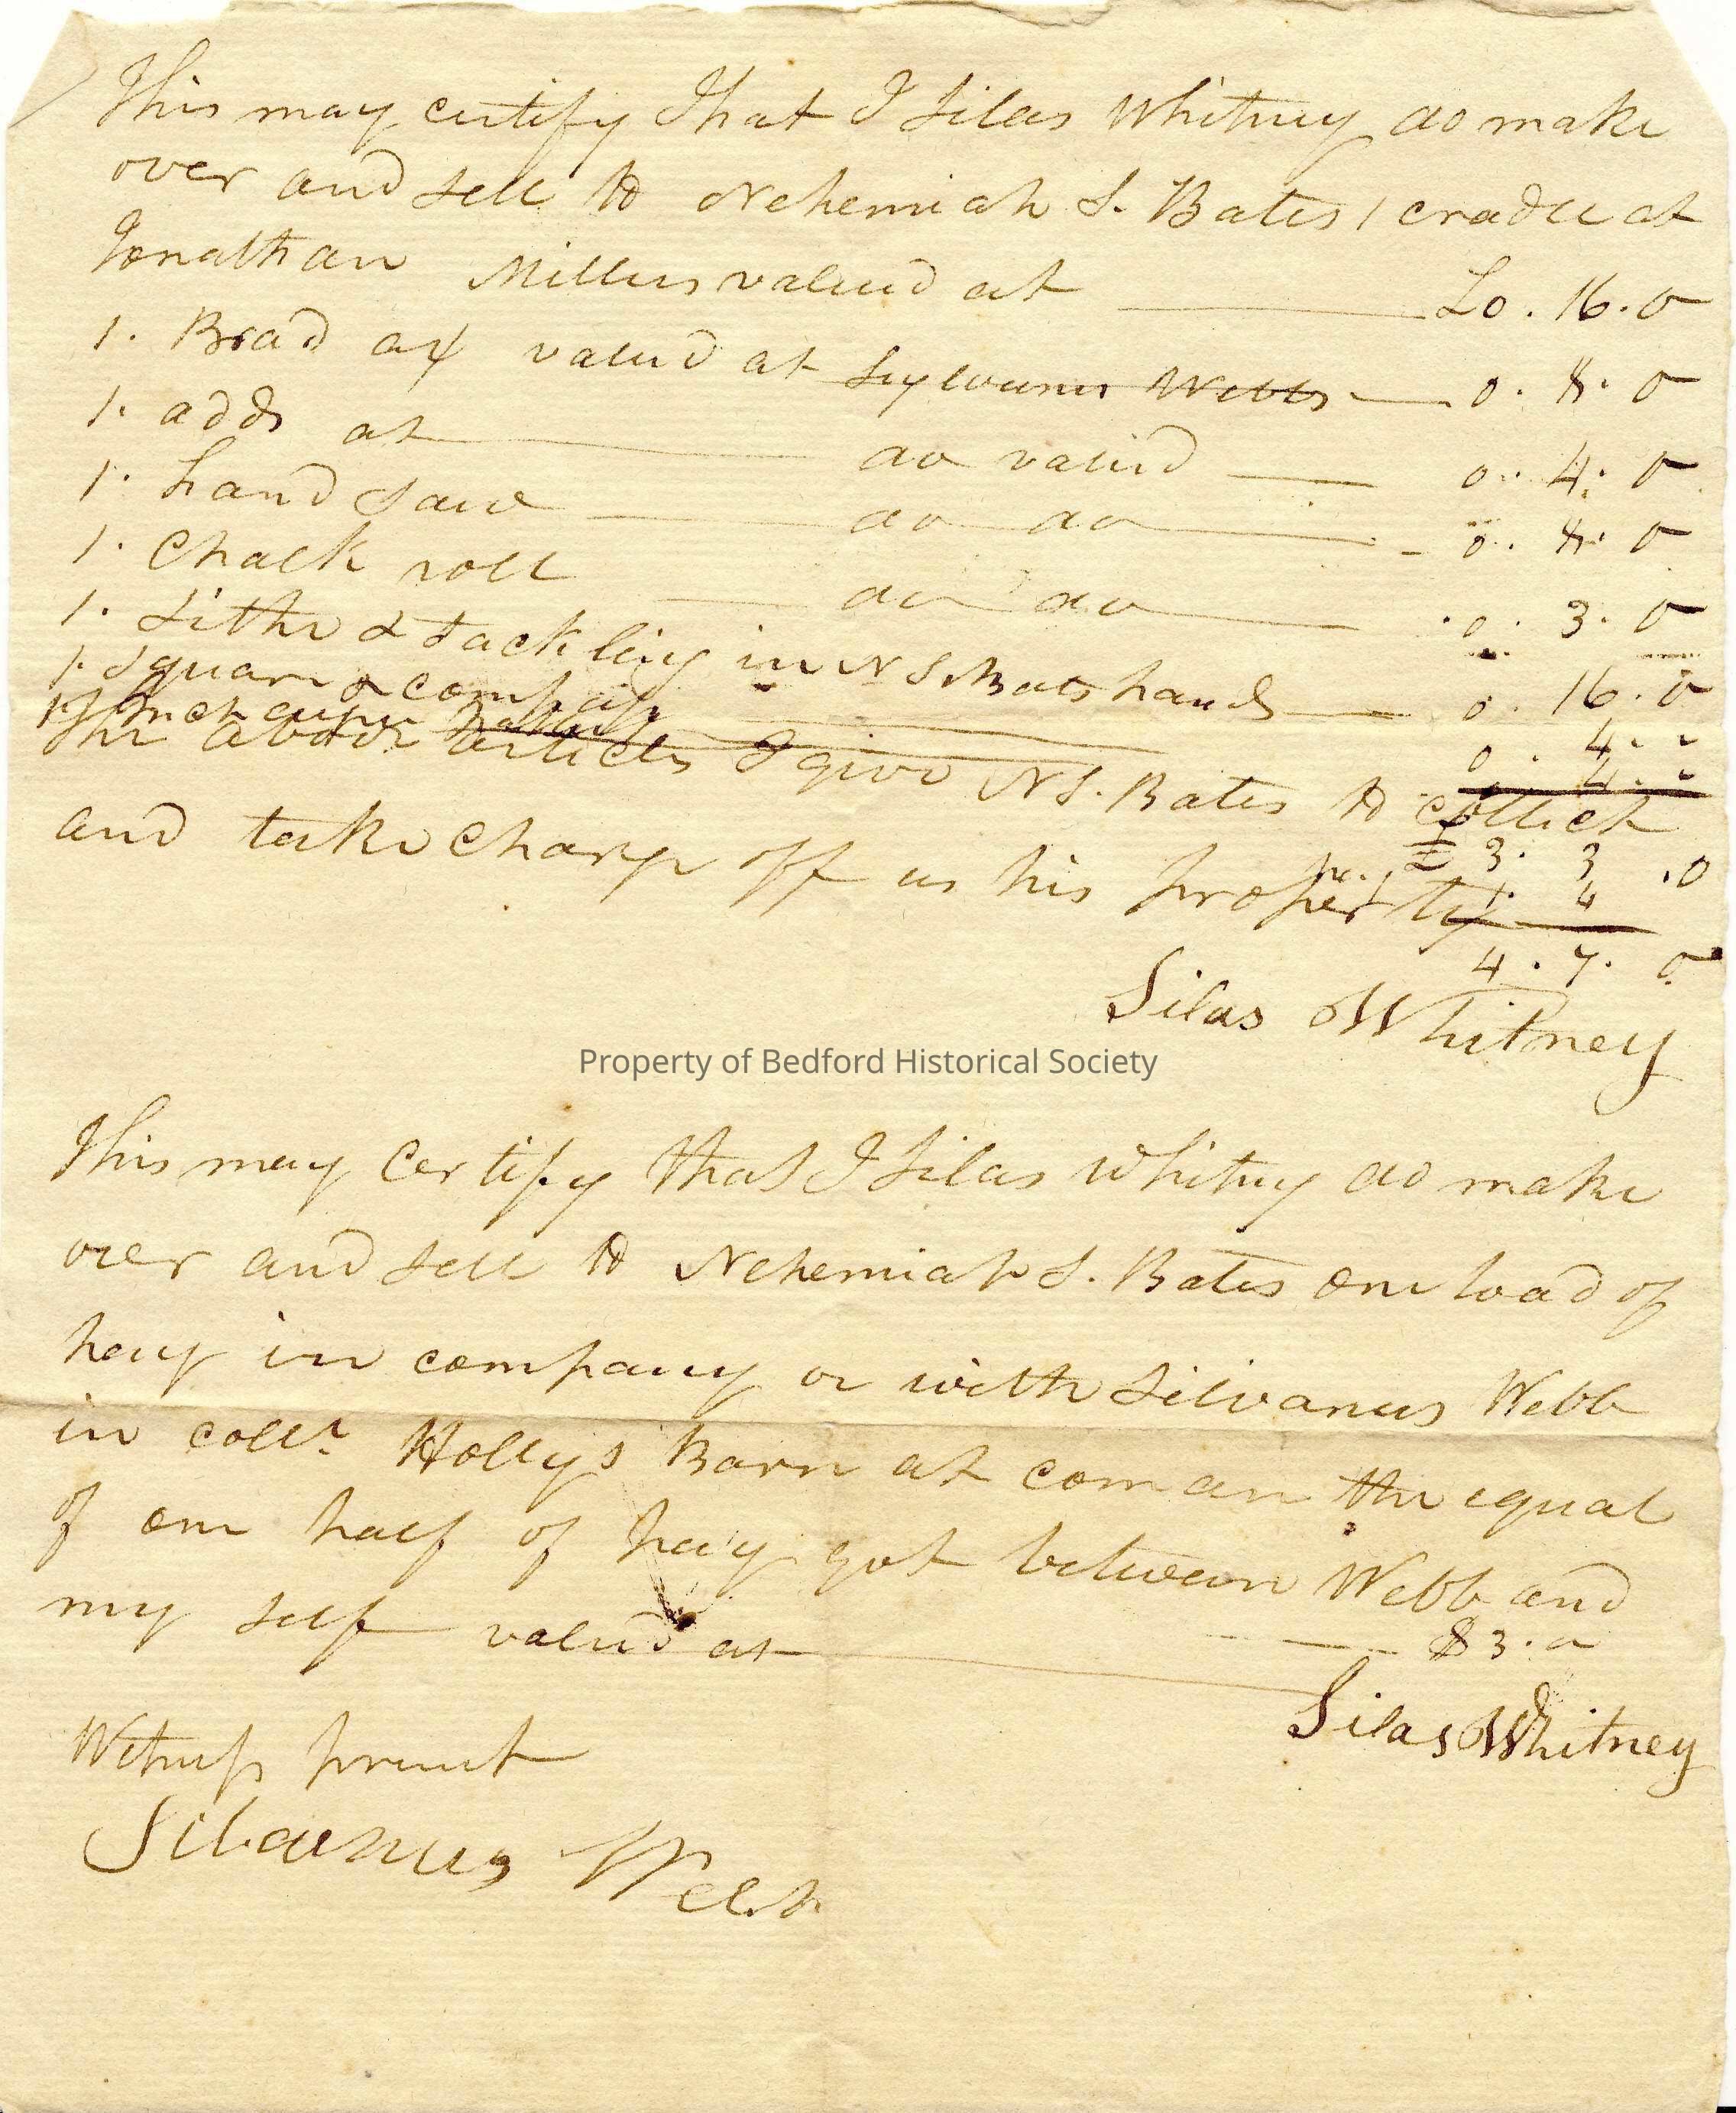 This may certify that I Silas Whitney do make
over and sell to Nehemiah S. Bates 1 cradle at
Jonathan Millers valued at £0. 16. 0
1. Broad ax valud at Sylvanus Webbs 0. 8. 0
1. adds at do valud 0. 4. 0
1. hand saw do do 0. 8. 0
1. Chalk roll do do 0. 3. 0
1. Sithe & tackling in N S Bats hands 0. 16. 0
1. Square & compass 0. 4.
1 Inch auger 4.
The above articles I give N S. Bates to collect
£ 3. 3 .0
and take charge off as his property
1. 4
4. 7. 0
Silas Whitney
Property of Bedford Historical Society
This may Certify that I Silas Whitny do make
over and sell to Nehemiah S. Bates one load of
hay in company or with Silvanus Webb
in collr. Hollys Barn at coman the equal
of one half of hay got between Webb and
my self valud at $3. 0
Silas Whitney
Witness present
Silvanus Webb